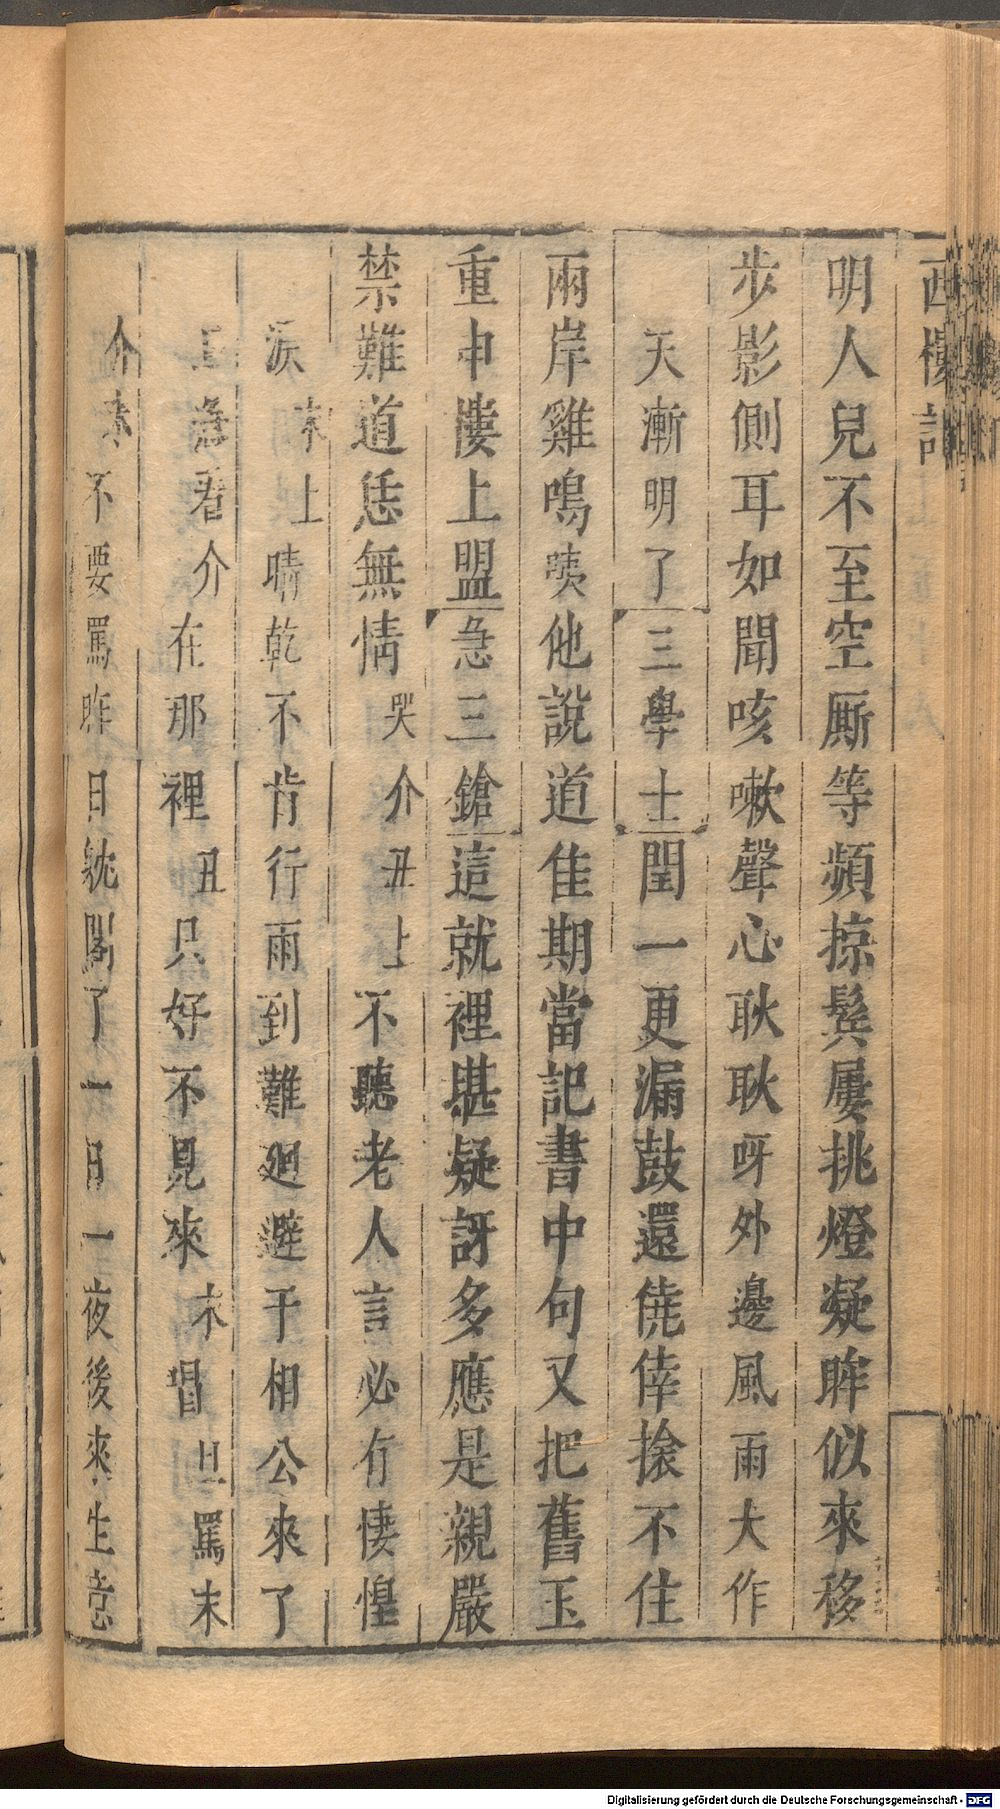 西樓記
明人兒不至空厮等頻掠鬂屢挑燈凝眸似來移
步影側耳如聞咳嗽聲心耿耿呀外邊風雨大作
天漸明了三學士閏一更漏鼓還僥倖捺不住
兩岸雞鳴咦他說道佳期當記書中句又把舊玉
重申㥪上盟急三鎗這就裡堪疑訝多應是親嚴
禁難道恁無情哭介丑上不聽老人言必有悽惶
淚末上晴乾不肯行雨到難廻避于相公來了
急看介在那裡丑只好不見來末唱旦罵末
介末不要罵昨日躭閣了一日一夜後來生意
Digitalisierung gefördert durch die Deutsche Forschungsgemeinschaft - DFG